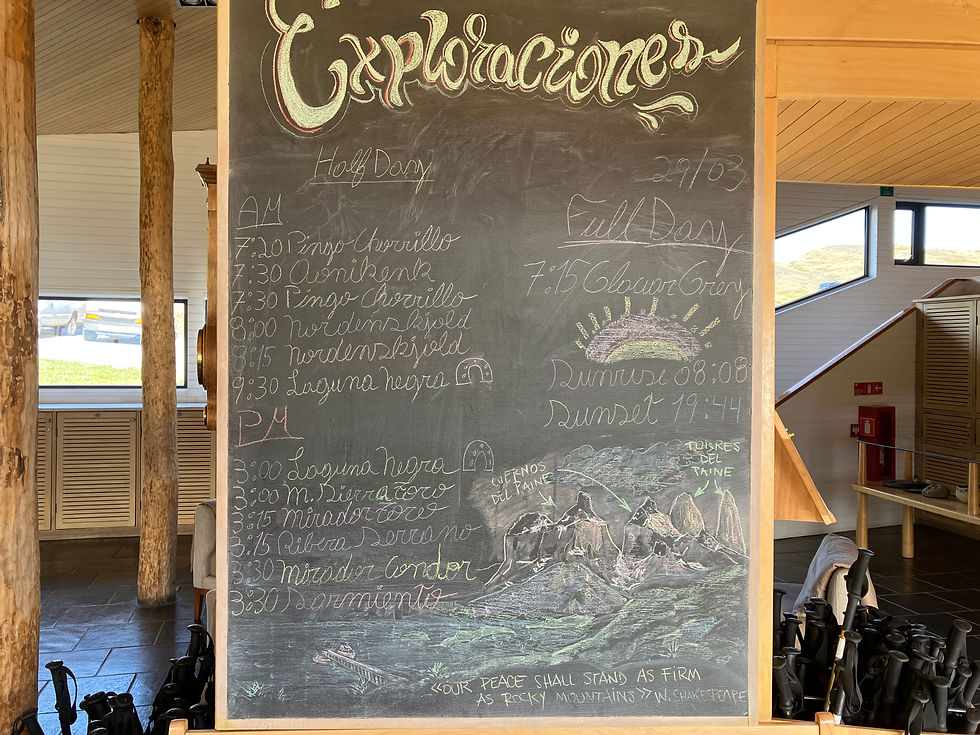 Exploraciones
Half Day
29/03
AM
7:20 Pingo Chorrillo
7:30 Aonikenk
7:30 Pingo Chorrillo
8:00 Nordenskjold
8:15 Nordenskjold
9:30 Laguna Negra
PM
3:00 Laguna Negra
3:00 M. Sierra Toro
3:15 Mirador Toro
3:15 Ribera Serrano
3:30 Mirador Condor
3:30 Sarmiento
Full Day
7:15 Glaciar Grey
Sunrise 08:08
Sunset 19:44
CUERNOS
DEL PAINE
TORRES
DEL
PAINE
«OUR PEACE SHALL STAND AS FIRM
AS ROCKY MOUNTAINS» W. SHAKESPEARE